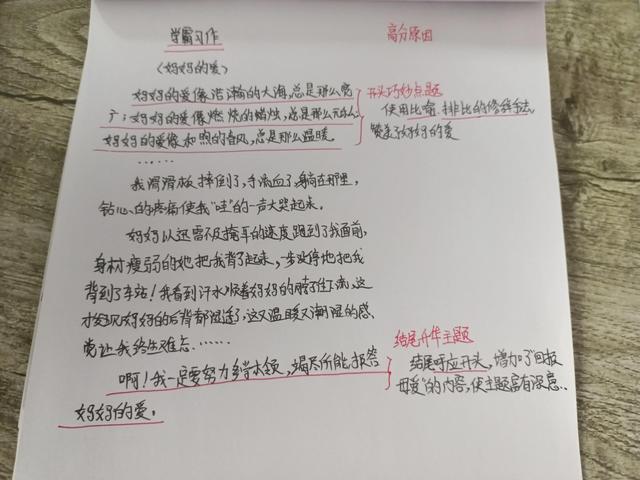 学霸习作
《妈妈的爱》
妈妈的爱像浩瀚的大海,总是那么宽
广;妈妈的爱像燃烧的蜡烛,总是那么无私;
妈妈的爱像和煦的春风,总是那么温暖。
……
我滑滑板摔倒了,手流血了,身淌在那里,
钻心的疼痛使我“哇”的一声大哭起来。
妈妈以迅雷不及掩耳的速度跑到了我面前,
身材瘦弱的她把我背了起来,一步不停地把我
背到了车站!我看到汗水顺着妈妈的脖子往下流,这
才发现妈妈的后背都湿透了,这又温暖又潮湿的感
觉让我终生难忘……
啊!我一定要努力学本领,竭尽所能报答
妈妈的爱。
高分原因
开头巧妙点题
使用比喻、排比的修辞手法,
赞美了妈妈的爱
结尾升华主题
结尾呼应开头,增加了“回报
母爱”的内容,使主题富有深意..